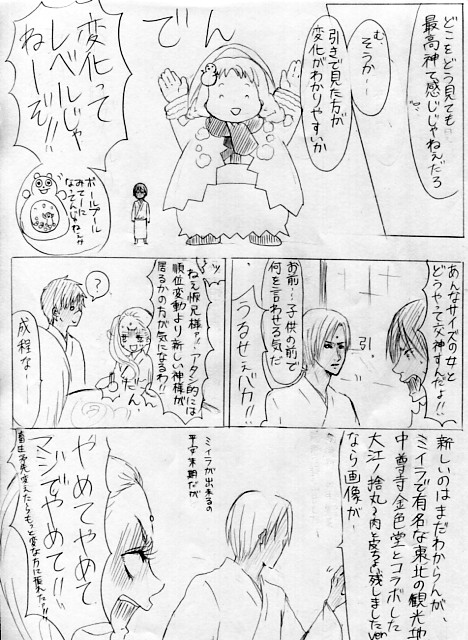 どこをどう見ても
最高神て感じじゃねえだろ
む…
そうか…
引きで見た方が
変化がわかりやすいか
でん
変化って
レベルじゃ
ねーぞ!!
ボールプール
みてーに
なってんじゃねぇか
あんなサイズの女と
どうやって交神すんだよ!!
お前…子供の前で
何を言わせる気だ
うるせぇバカ!!
アタシ的には
順位変動より新しい神様が
居るかの方が気になるわ!!
?
成程な…
新しいのはまだわからんが、
ミイラで有名な東北の観光地
中尊寺金色堂とコラボした
大江ノ捨丸〜肉と皮ちょい残しましたver
なら画像が、
ミイラが出来るの
平安末期だが
やめてやめて
マジでやめて!!